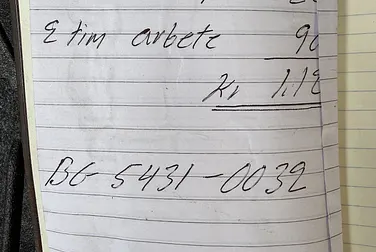 2 tim arbete 90
Kr 1.18
BG 5431-0032